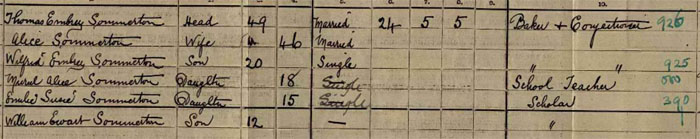 Thomas Embrey Sommerton Head 49 Married 24 5 5 Baker & Confectioner 926
Alice Sommerton Wife 46 Married
Wilfrid Embrey Sommerton Son 20 Single " " 925
Muriel Alice Sommerton Daughter 18 Single School Teacher
Sommerton Daughter 15 Single Scholar 390
William Ewart Sommerton Son 12 — "